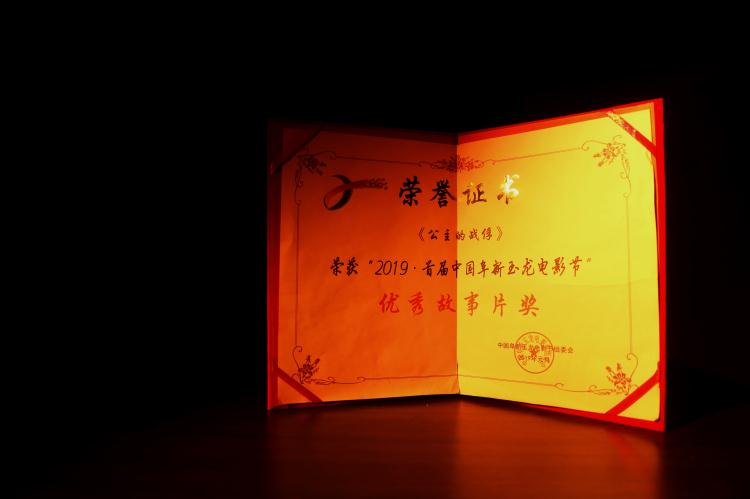 荣誉证书
《公主的战俘》
荣获“2019·首届中国阜新玉龙电影节”
优秀故事片奖
中国阜新玉龙电影节组委会